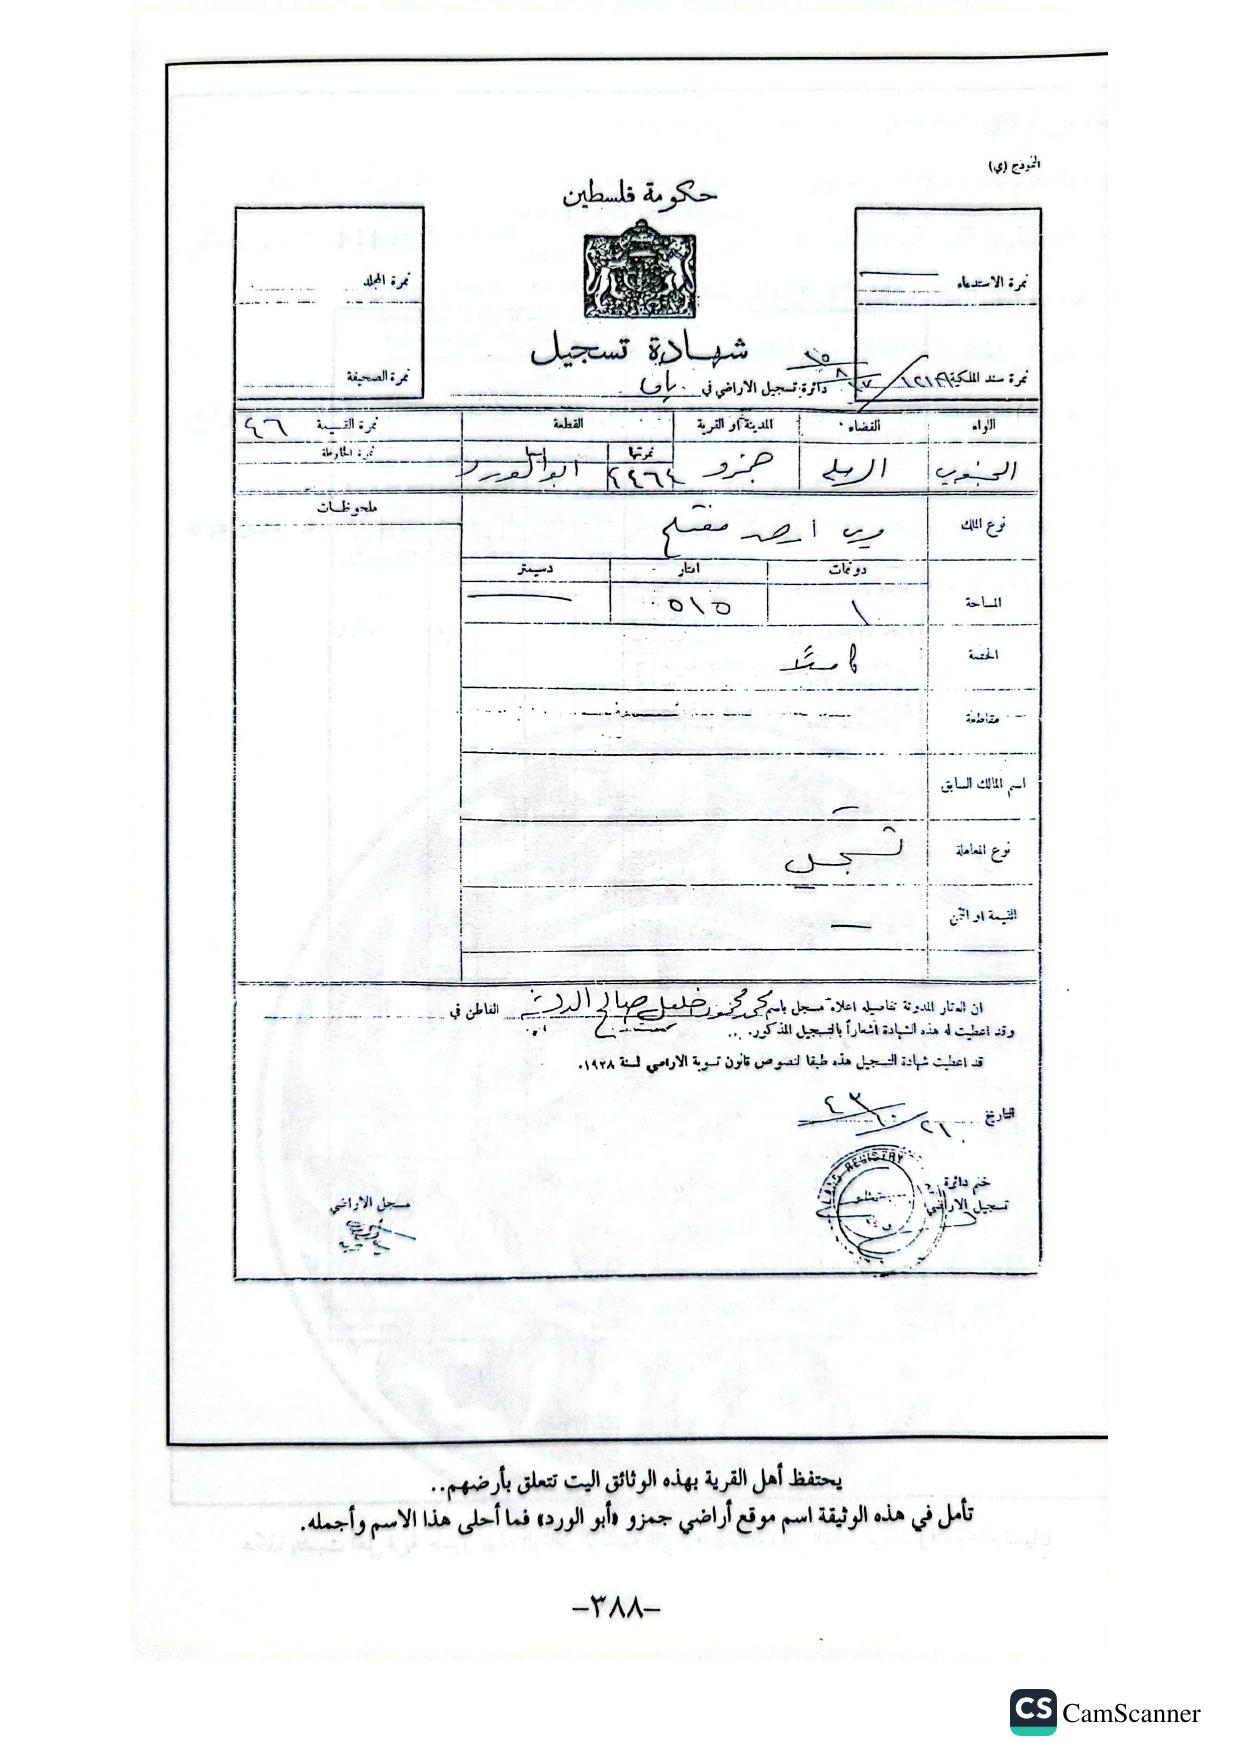 النموذج (ي)
حكومة فلسطين
نمرة الاستدعاء
نمرة المجلد
شهادة تسجيل
نمرة سند الملكية
دائرة تسجيل الاراضي في يافا
نمرة الصحيفة
اللواء القضاء المدينة او القرية القطعة نمرة القسيمة ٤٦
نمرتها اسمها نمرة الخارطة
الجنوبي الرملة جمزو ٤٤٦٤ ابو الورد
نوع الملك ميري ارض مفتلح
ملحوظات
دونمات امتار دسيمتر
المساحة ١ ٥١٥
الحصة كاملا
مقاطعة
اسم المالك السابق
نوع المعاملة تسجيل
القيمة او الثمن
ان العقار المدونة تفاصيله اعلاه مسجل باسم محمد محمود خليل صالح القاطن في
وقد اعطيت له هذه الشهادة اشعاراً بالتسجيل المذكور.
قد اعطيت شهادة التسجيل هذه طبقا لنصوص قانون تسوية الاراضي لسنة ١٩٢٨.
التاريخ ٢١/١٠/٤٣
LAND REGISTRY
ختم دائرة
تسجيل الاراضي
مسجل الاراضي
يحتفظ أهل القرية بهذه الوثائق اليت تتعلق بأرضهم..
تأمل في هذه الوثيقة اسم موقع أراضي جمزو «أبو الورد» فما أحلى هذا الاسم وأجمله.
-٣٨٨-
CS CamScanner